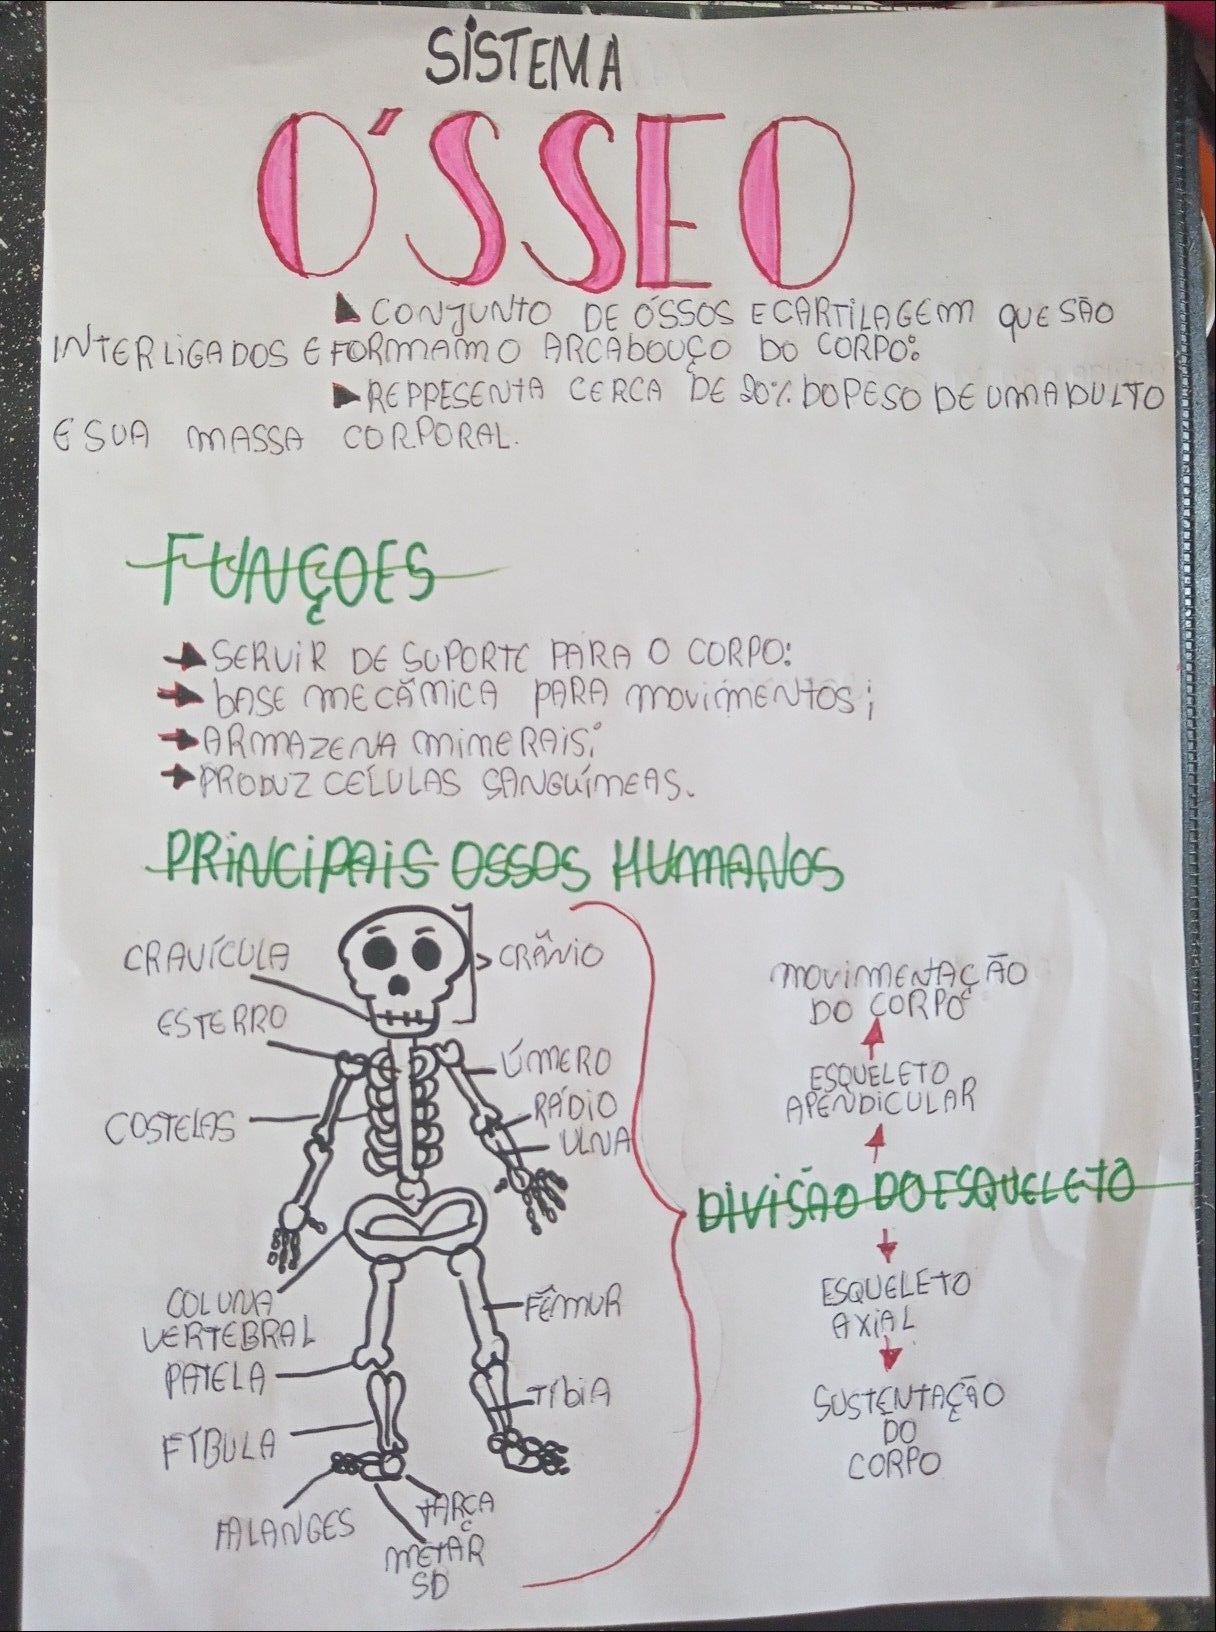 SISTEMA
ÓSSEO
CONJUNTO DE ÓSSOS E CARTILAGEM QUE SÃO
INTERLIGADOS E FORMAM O ARCABOUÇO DO CORPO:
REPRESENTA CERCA DE 20% DO PESO DE UM ADULTO
E SUA MASSA CORPORAL.
FUNÇOES
SERVIR DE SUPORTE PARA O CORPO:
BASE MECÂMICA PARA MOVIMENTOS;
ARMAZENA MIMERAIS;
PRODUZ CELÚLAS SANGUÍMEAS.
PRINCIPAIS OSSOS HUMANOS
CRAVÍCULA
CRÂNIO
ESTERRO
ÚMERO
RÁDIO
COSTELAS
ULNA
COLUNA
VERTEBRAL
FÊMUR
PATELA
TÍBIA
FÍBULA
FALANGES
TARÇA
METAR
SD
MOVIMENTAÇÃO
DO CORPO
ESQUELETO
APENDICULAR
DIVISÃO DO ESQUELETO
ESQUELETO
AXIAL
SUSTENTAÇÃO
DO
CORPO